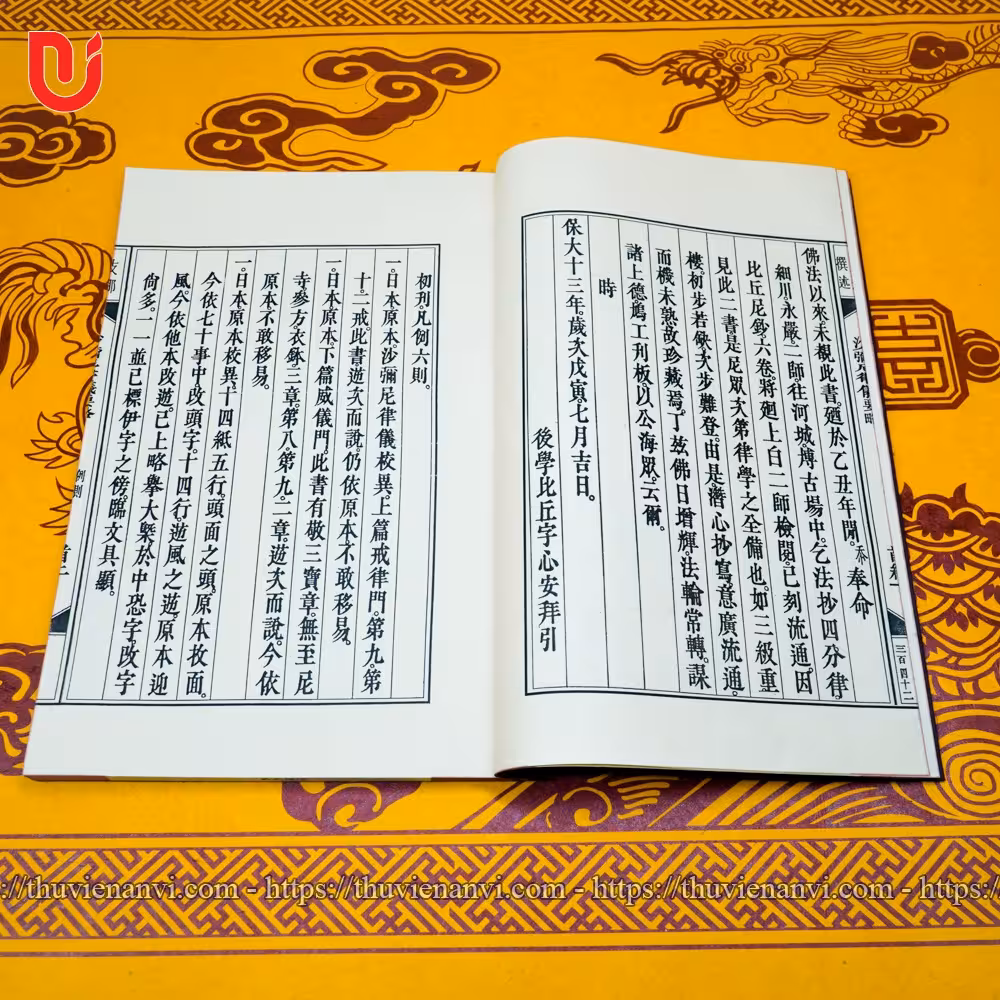 佛法以來未覩此書。廼於乙丑年間。忝奉命
細川。永嚴二師。往河城。博古場中。乞法抄四分律。
比丘尼鈔六卷將廻。上白二師檢閱。已刻流通。因
見此二書。是尼眾次第律學之全備也。如三級重
樓。初步若缺。次步難登。由是潛心抄寫。意廣流通。
而機未熟。故珍藏焉。了茲佛日增輝。法輪常轉。謀
諸上德。鳩工刋板。以公海眾。云爾。
時
保大十三年。歲次戊寅。七月吉日。
後學比丘字心安拜引
撰述
三百四十二
初刋凡例六則。
一。日本原本。沙彌尼律儀校異。上篇戒律門。第九。第
十二戒。此書遊次而說。仍依原本。不敢移易。
一。日本原本。下篇威儀門。此書有敬三寶章。無至尼
寺參方。衣鉢。三章。第八第九。二章。遊次而說。今依
原本。不敢移易。
一。日本原本校異。十四紙五行。頭面之頭。原本枚面。
今依七十事中。改頭字。十四行。遊風之遊。原本迎
風。今依他本改遊。已上略擧大槩。於中恐字。改字
尙多。一一並已標伊字之傍。臨文具顯。
例則
https://thuvienanvi.com - https://thuvienanvi.com - https://thuvienanvi.com